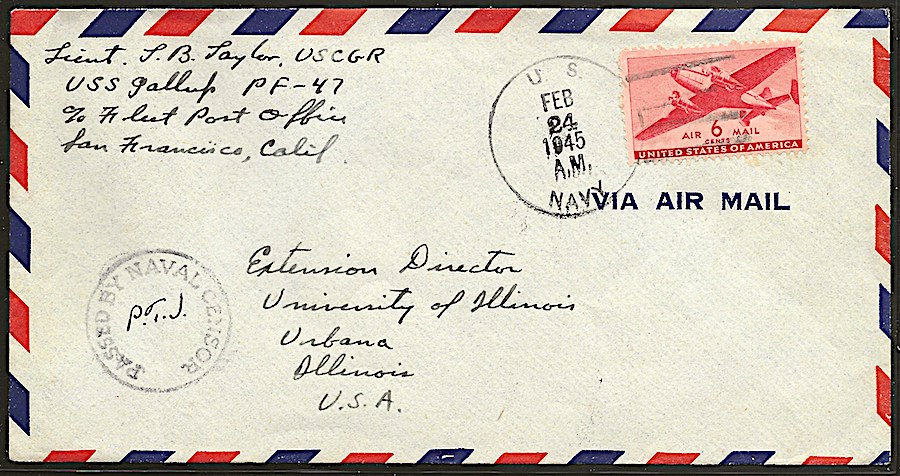 Lieut. T. B. Taylor, USCGR
USS Gallup PF-47
c/o Fleet Post Office
San Francisco, Calif.
U. S.
FEB
24
1945
A.M.
NAVY
AIR 6 MAIL
CENTS
UNITED STATES OF AMERICA
VIA AIR MAIL
PASSED BY NAVAL CENSOR
P.T.J.
Extension Director
University of Illinois
Urbana
Illinois
U.S.A.